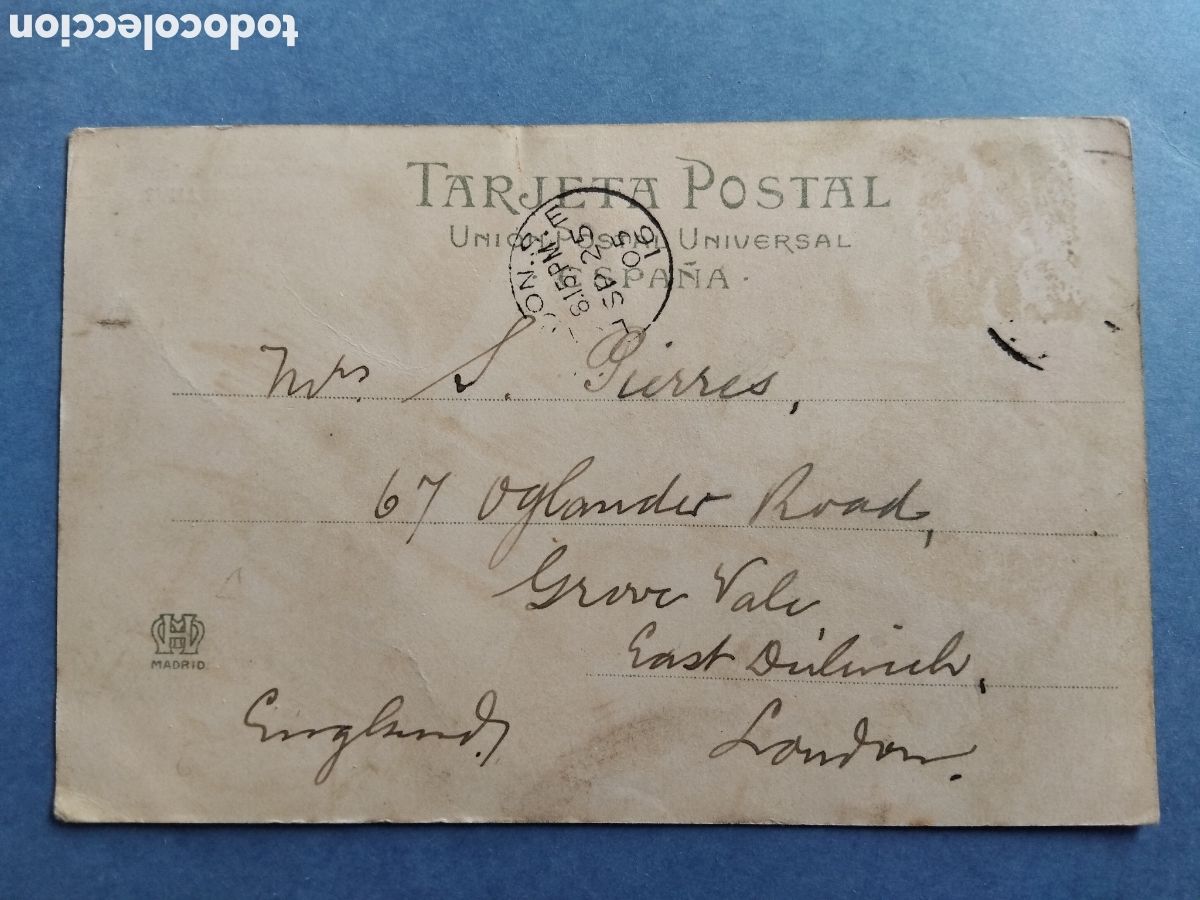 todocoleccion
TARJETA POSTAL
UNIÓN POSTAL UNIVERSAL
ESPAÑA
8.15PM
SP 25
05
16
Mrs S. Pierres,
67 Oglander Road,
Grove Vale,
East Dulwich,
London.
England
MADRID